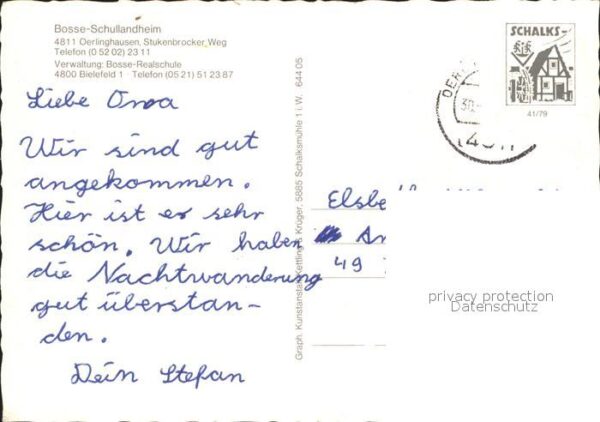 Bosse-Schullandheim
4811 Oerlinghausen, Stukenbrocker Weg
Telefon (0 52 02) 23 11
Verwaltung: Bosse-Realschule
4800 Bielefeld 1 Telefon (05 21) 51 23 87
Liebe Oma
Wir sind gut
angekommen.
Hier ist es sehr
schön. Wir haben
die Nachtwanderung
gut überstan-
den.
Dein Stefan
Graph. Kunstanstalt Kettling & Krüger, 5885 Schalksmühle 1 i.W. 644 05
SCHALKS-
41/79
Elsbe
An
49
privacy protection
Datenschutz